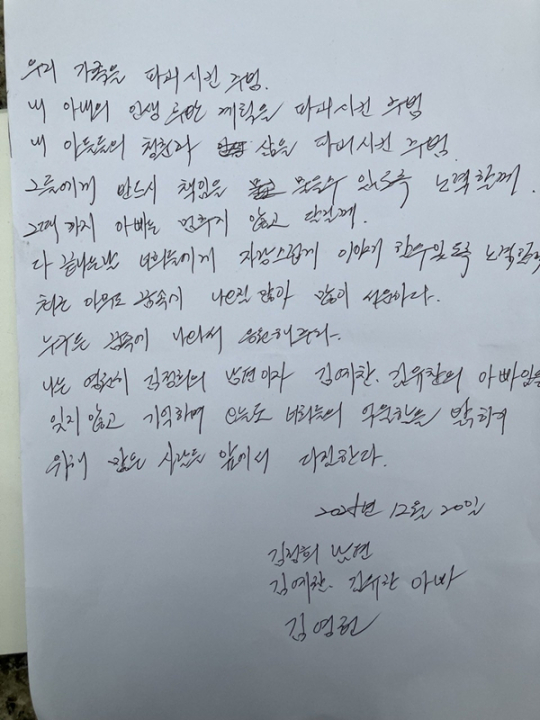 우리 가족을 파괴시킨 주범.
내 아내의 인생 후반 계획을 파괴시킨 주범
내 아들들의 청춘과 삶을 파괴시킨 주범.
그들에게 반드시 책임을 물을수 있도록 노력할께.
그때까지 아빠는 멈추지 않고 달릴께.
다 끝나는날 너희들에게 자랑스럽게 이야기 할수있도록 노력할께
최근 아무도 꿈속에 나오질 않아 많이 서운하다.
누구든 꿈속에 나와서 응원해주라.
나는 영원히 김정희의 남편이자 김예찬. 김유찬의 아빠임을
잊지않고 기억하며 오늘도 너희들의 억울한을 밝히기
위해 많은 사람들 앞에서 다짐한다.
12월 20일
김정희 남편
김예찬. 김유찬 아빠
김영헌